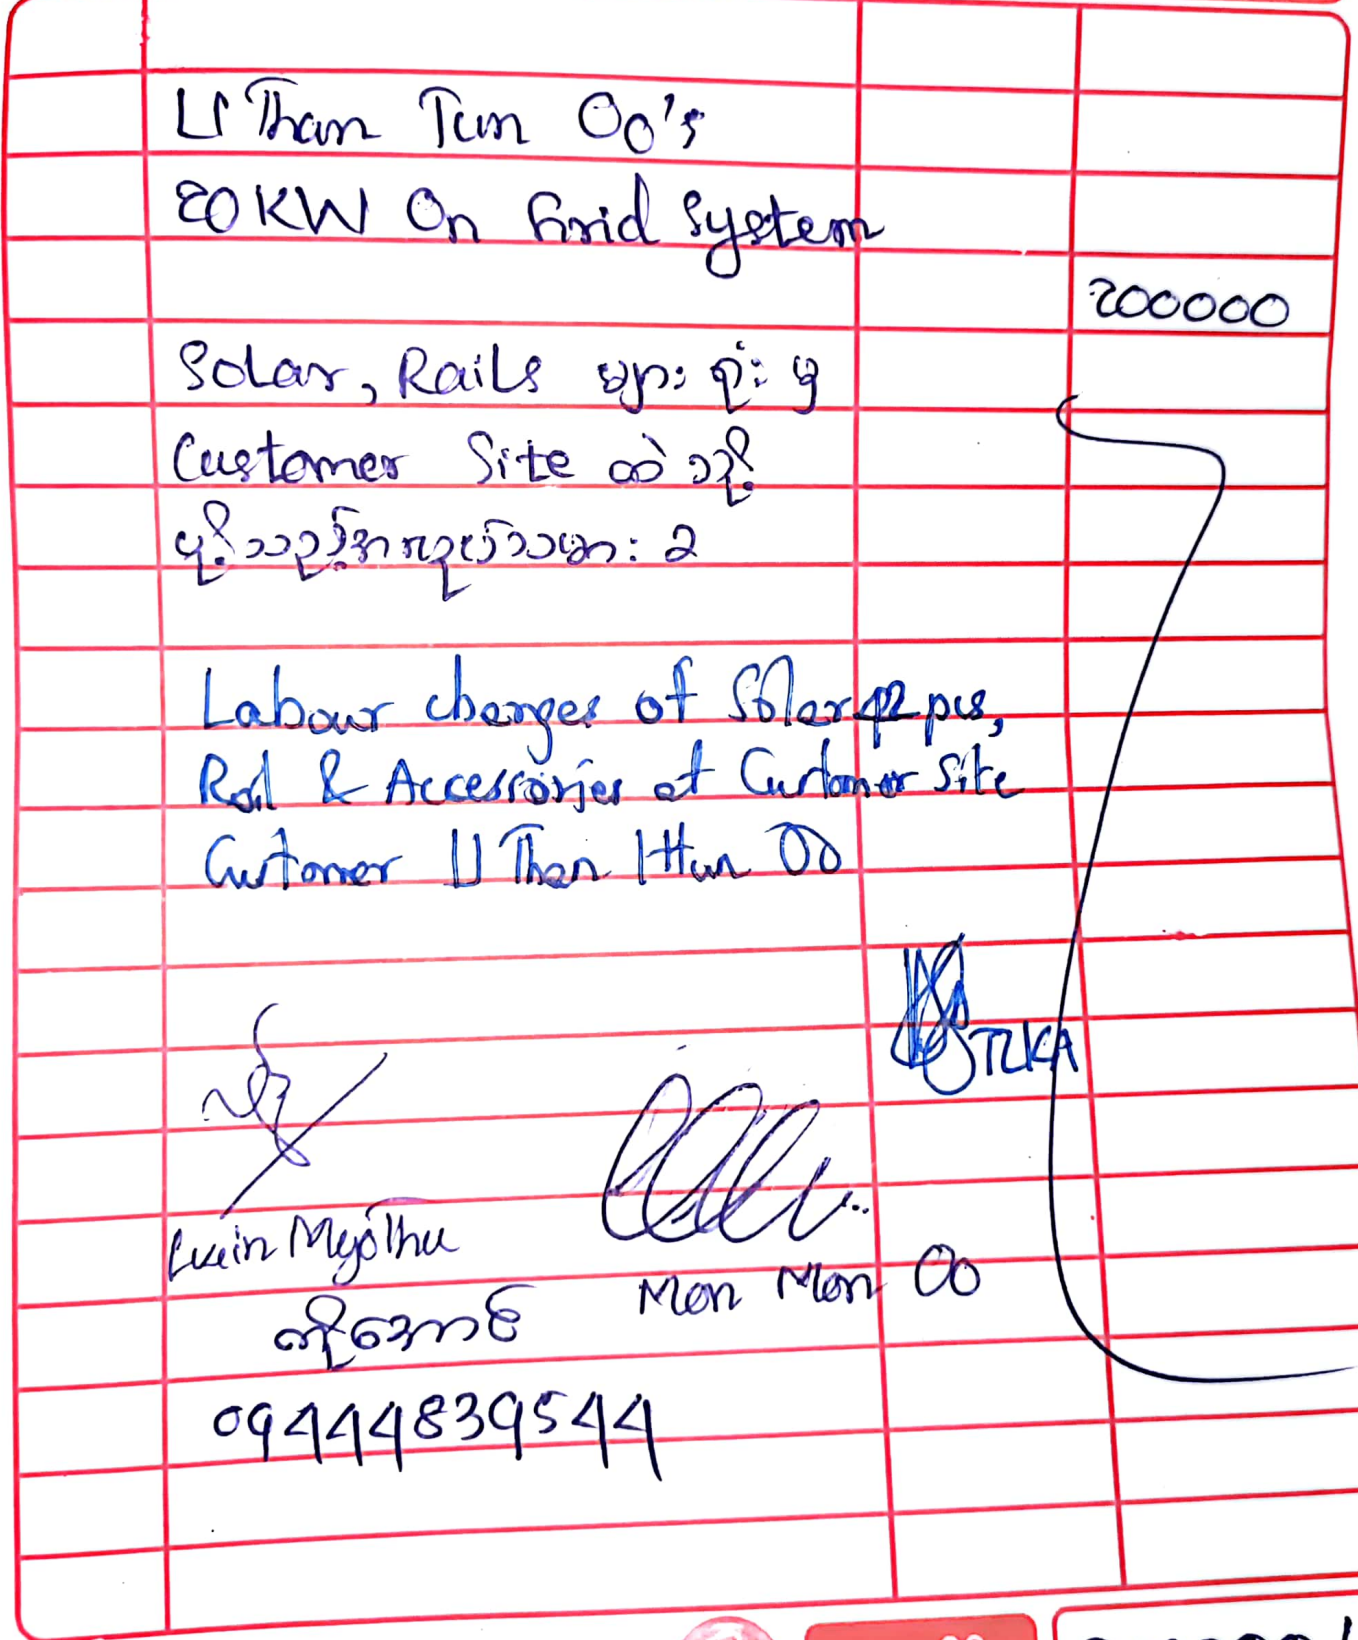 U Than Tun Oo's
20KW On Grid System
200000
Solar, Rails များ ရုံးမှ
Customer Site ထဲသို့
ပို့သည့်အလုပ်သမားခ
Labour charges of Solar 42 pcs,
Rail & Accessories at Customer Site
Customer U Than Htun Oo
TZKA
Lwin Myo Thu
Mon Mon Oo
ကိုအောင်
09444839544